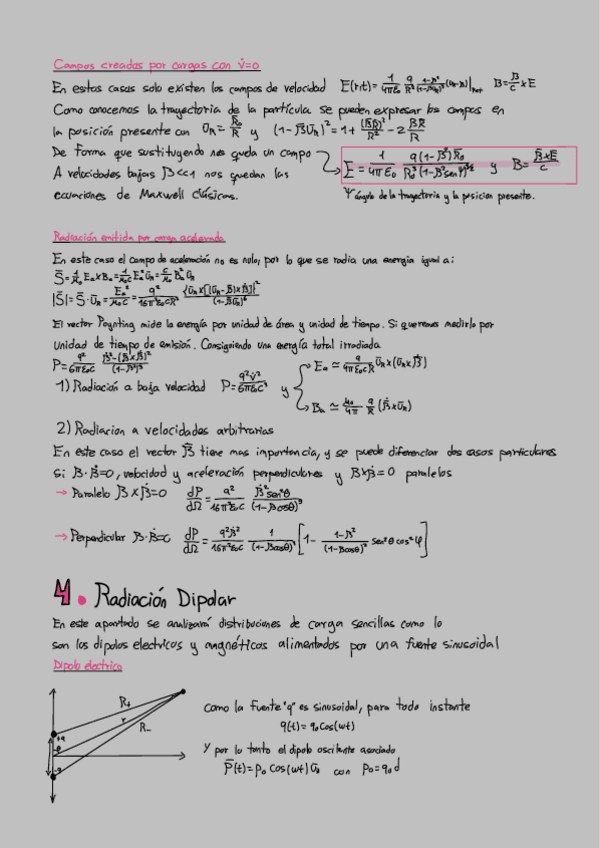 Campos creados por cargas con v̇=0
En estos casos solo existen los campos de velocidad E(r,t)= 1/4πε₀ q/R² (1-β²)/(1-β̄ūR)³ (ūR-β̄)|ret B=β̄/c×E
Como conocemos la trayectoria de la partícula se pueden expresar los campos en
la posición presente con ūR=R̄₀/R y (1-β̄ūR)²=1+(β̄R̄)²/R²-2β̄R̄/R
De forma que sustituyendo nos queda un campo E= 1/4πε₀ q(1-β²)R̄₀/R₀³(1-β²sen²ψ)^3/2 y B= β̄×E/c
A velocidades bajas β<<1 nos quedan las
ecuaciones de Maxwell clásicas. ψ ángulo de la trayectoria y la posicion presente.
Radiación emitida por carga acelerada
En este caso el campo de aceleración no es nulo, por lo que se radia una energia igual a:
S̄=1/μ₀ Ea×Ba=1/μ₀c Ea²ūR=c/μ₀ Ba²ūR
|S̄|=S̄·ūR=Ea²/μ₀c=q²/16π²ε₀cR² {ūR×[(ūR-β̄)×β̄̇]}²/(1-β̄ūR)⁶
El vector Poynting mide la energía por unidad de área y unidad de tiempo. Si queremos medirlo por
unidad de tiempo de emisión. Consiguiendo una energía total irradiada
P=q²/6πε₀c β̇²-(β̄×β̄̇)²/(1-β²)³
1) Radiación a baja velocidad P=q²v̇²/6πε₀c³ y Ea ≃ q/4πε₀cR ūR×(ūR×β̄̇)
Ba ≃ μ₀/4π q/R (β̄̇×ūR)
2) Radiacion a velocidades arbitrarias
En este caso el vector β̄ tiene mas importancia, y se puede diferenciar dos casos particulares
si β·β̇=0, velocidad y aceleración perpendiculares y β×β̇=0 paralelos
→ Paralelo β×β̇=0 dP/dΩ=q²/16π²ε₀c β̇²sen²θ/(1-βcosθ)⁵
→ Perpendicular β·β̇=0 dP/dΩ=q²β̇²/16π²ε₀c 1/(1-βcosθ)³ [1- (1-β²)/(1-βcosθ)² sen²θcos²φ]
4. Radiación Dipolar
En este apartado se analizará distribuciones de carga sencillas como lo
son los dipolos electricos y magnéticos alimentados por una fuente sinusoidal
Dipolo electrico
R+
r
R-
+q
θ
-q
Como la fuente "q" es sinusoidal, para todo instante
q(t)=q₀cos(wt)
Y por lo tanto el dipolo oscilante asociado
P̄(t)=p₀cos(wt)ū₀ con p₀=q₀d